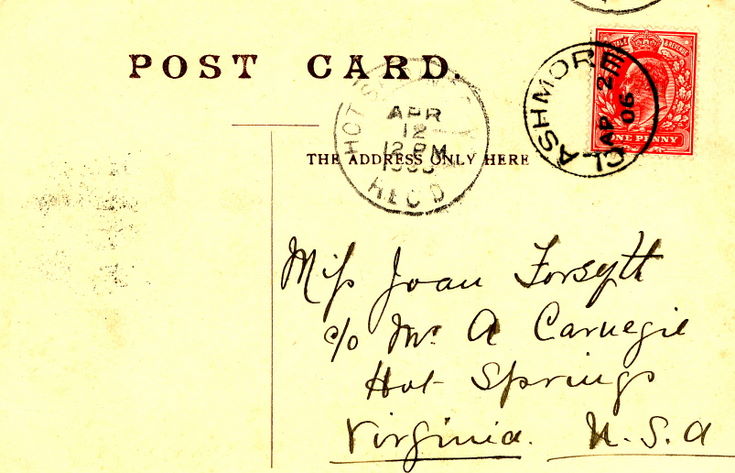 POST CARD.
CLASHMORE
AP 2
06
ONE PENNY
HOT
APR
12
12 PM
REC'D
THE ADDRESS ONLY HERE
Miss Joan Forsyth
c/o Mr. A Carnegie
Hot Springs
Virginia. U.S.A